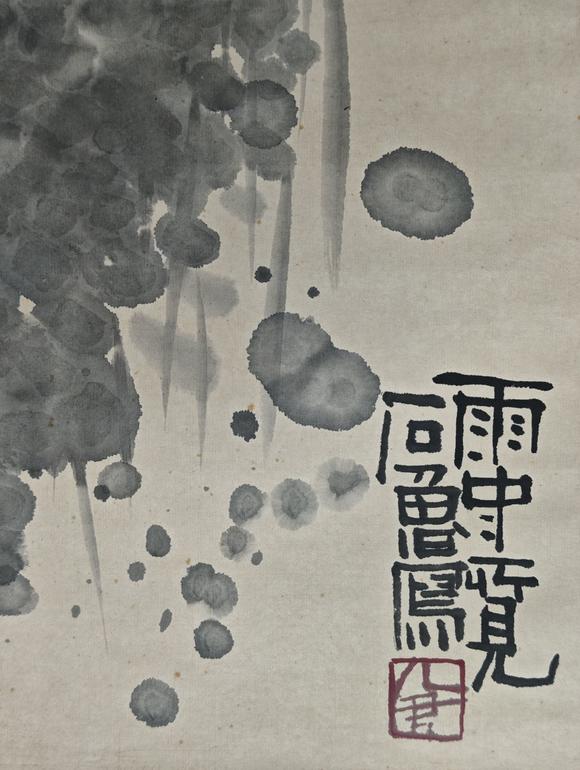 雨中
石魯寫